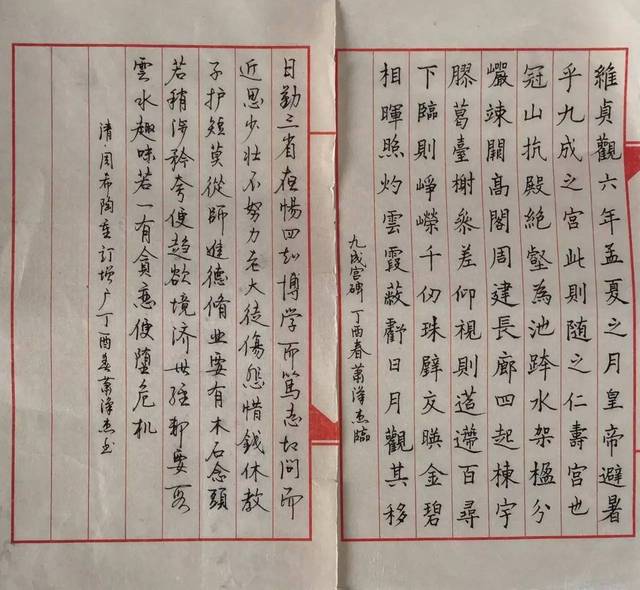 維貞觀六年孟夏之月皇帝避暑
乎九成之宮此則隨之仁壽宮也
冠山抗殿絕壑為池跨水架楹分
巖竦闕高閣周建長廊四起棟宇
膠葛臺榭參差仰視則迢遰百尋
下臨則崢嶸千仞珠璧交暎金碧
相暉照灼雲霞蔽虧日月觀其移
九成宮碑 丁酉春萧泽杰臨
日勤三省夜惕四知博学而篤志切問而
近思少壮不努力老大徒傷悲惜錢休教
子护短莫從師進德脩业要有木石念頭
若稍涉矜夸便趋欲境济世经邦要段
雲水趣味若一有貪恋便堕危机
清·周希陶重訂增广丁酉春萧泽杰书